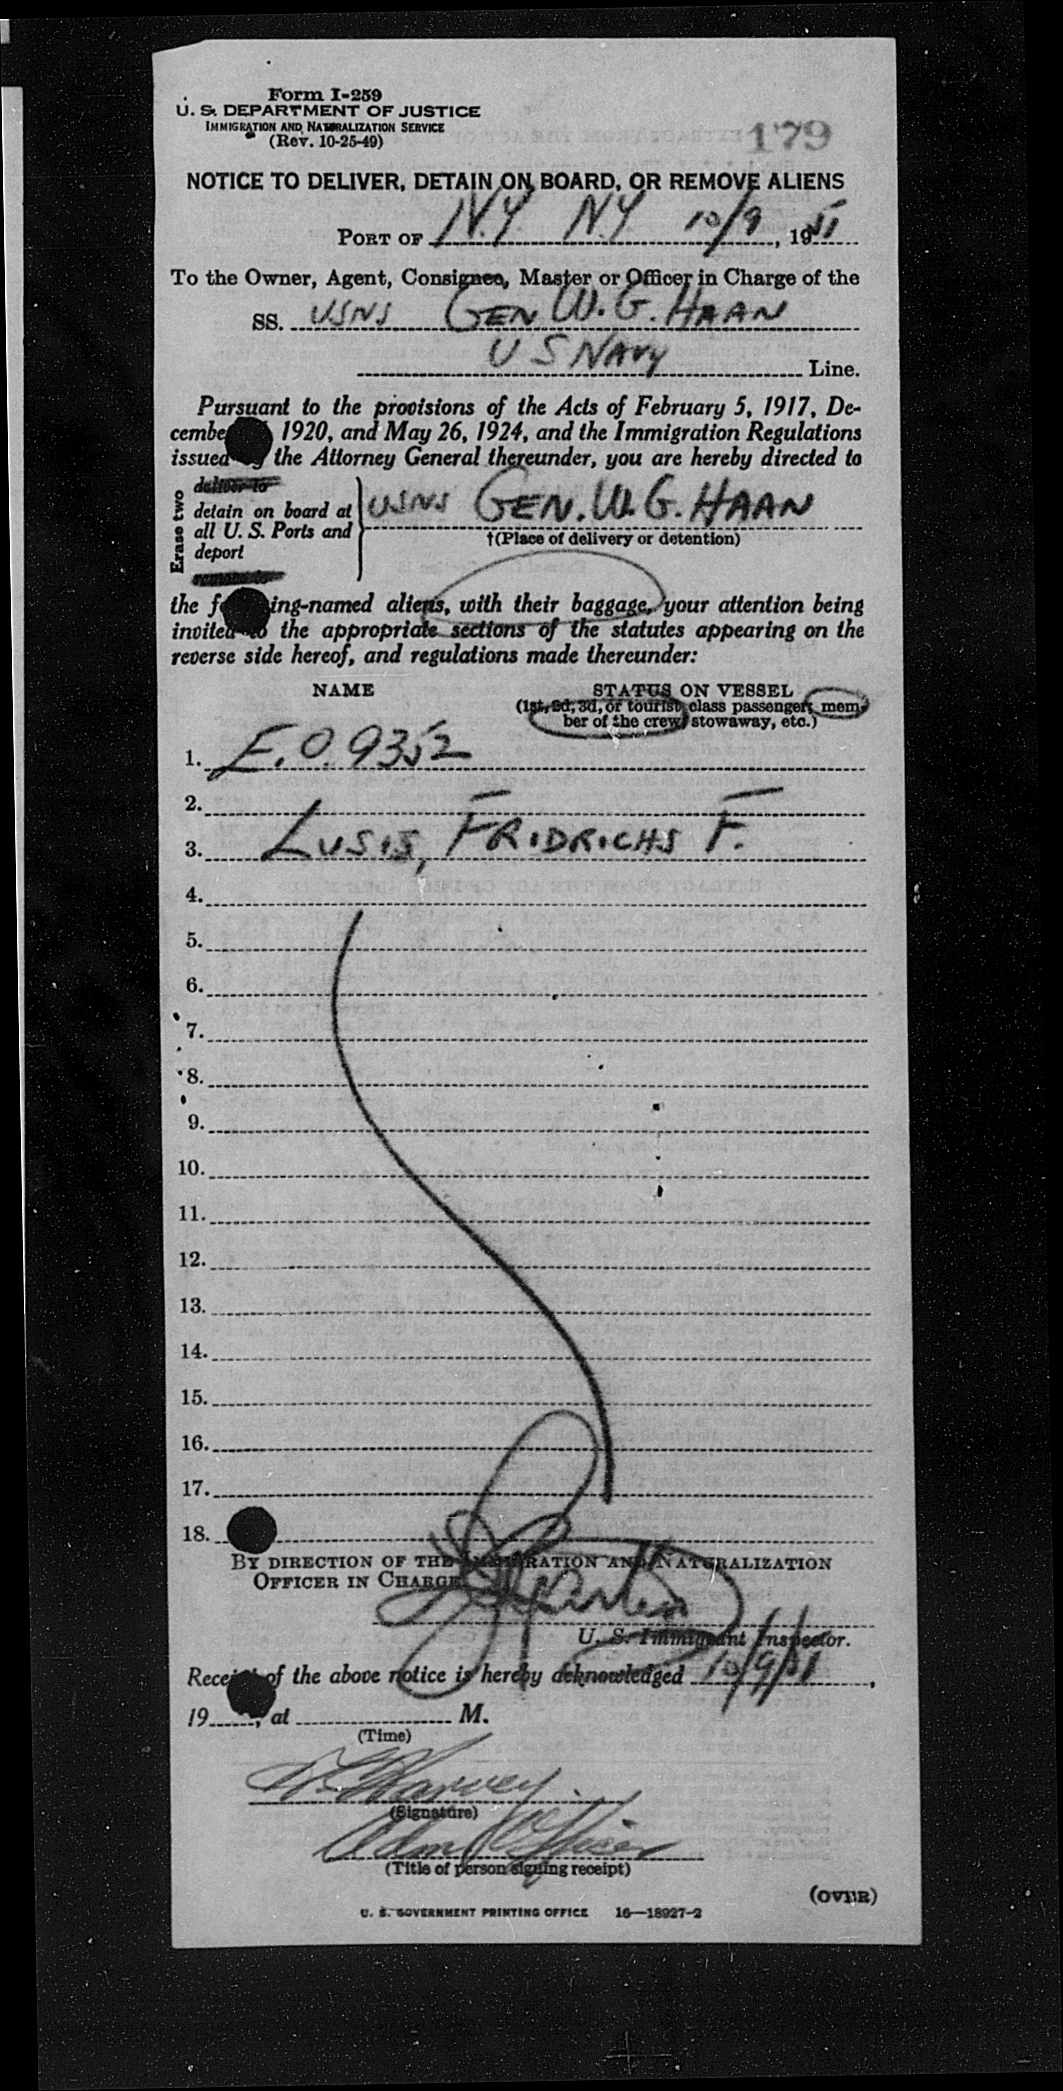 Form I-259
U. S. DEPARTMENT OF JUSTICE
IMMIGRATION AND NATURALIZATION SERVICE
(Rev. 10-25-49)
179
NOTICE TO DELIVER, DETAIN ON BOARD, OR REMOVE ALIENS
PORT OF N.Y. N.Y 10/9, 1951
To the Owner, Agent, Consignee, Master or Officer in Charge of the
SS. USNS GEN. W. G. HAAN
U S NAVY Line.
Pursuant to the provisions of the Acts of February 5, 1917, De-
cember 1920, and May 26, 1924, and the Immigration Regulations
issued by the Attorney General thereunder, you are hereby directed to
Erase two
deliver to
detain on board at
all U. S. Ports and
deport
remove to
USNS GEN. W. G. HAAN
†(Place of delivery or detention)
the following-named aliens, with their baggage, your attention being
invited to the appropriate sections of the statutes appearing on the
reverse side hereof, and regulations made thereunder:
NAME
STATUS ON VESSEL
(1st, 2d, 3d, or tourist class passenger, mem-
ber of the crew, stowaway, etc.)
1. E.O. 9352
2.
3. LUSIS, FRIDRICHS F.
4.
5.
6.
7.
8.
9.
10.
11.
12.
13.
14.
15.
16.
17.
18.
BY DIRECTION OF THE IMMIGRATION AND NATURALIZATION
OFFICER IN CHARGE
U. S. Immigrant Inspector.
Receipt of the above notice is hereby acknowledged 10/9/51,
19, at M.
(Time)
Harvey
(Signature)
Adm Officer
(Title of person signing receipt)
(OVER)
U. S. GOVERNMENT PRINTING OFFICE 16—18927-2